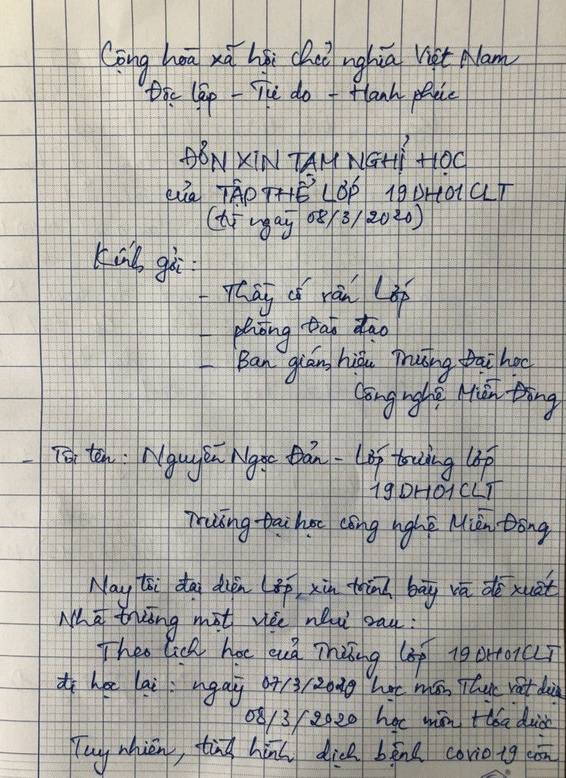 Cộng hoà xã hội chủ nghĩa Việt Nam
Độc lập - Tự do - Hạnh phúc
ĐƠN XIN TẠM NGHỈ HỌC
của TẬP THỂ LỚP 19DH01CLT
(từ ngày 08/3/2020)
Kính gởi :
- Thầy cố vấn Lớp
- phòng Đào đạo
- Ban giám hiệu Trường Đại học
Công nghệ Miền Đông
- Tôi tên : Nguyễn Ngọc Đản - Lớp trưởng lớp
19DH01CLT
Trường Đại học công nghệ Miền Đông
Nay tôi đại diện Lớp, xin trình bày và đề xuất
Nhà trường một việc như sau :
Theo lịch học của Trường lớp 19DH01CLT
đi học lại : ngày 07/3/2020 học môn Thực vật dược
08/3/2020 học môn Hóa dược
Tuy nhiên, tình hình dịch bệnh covid 19 còn